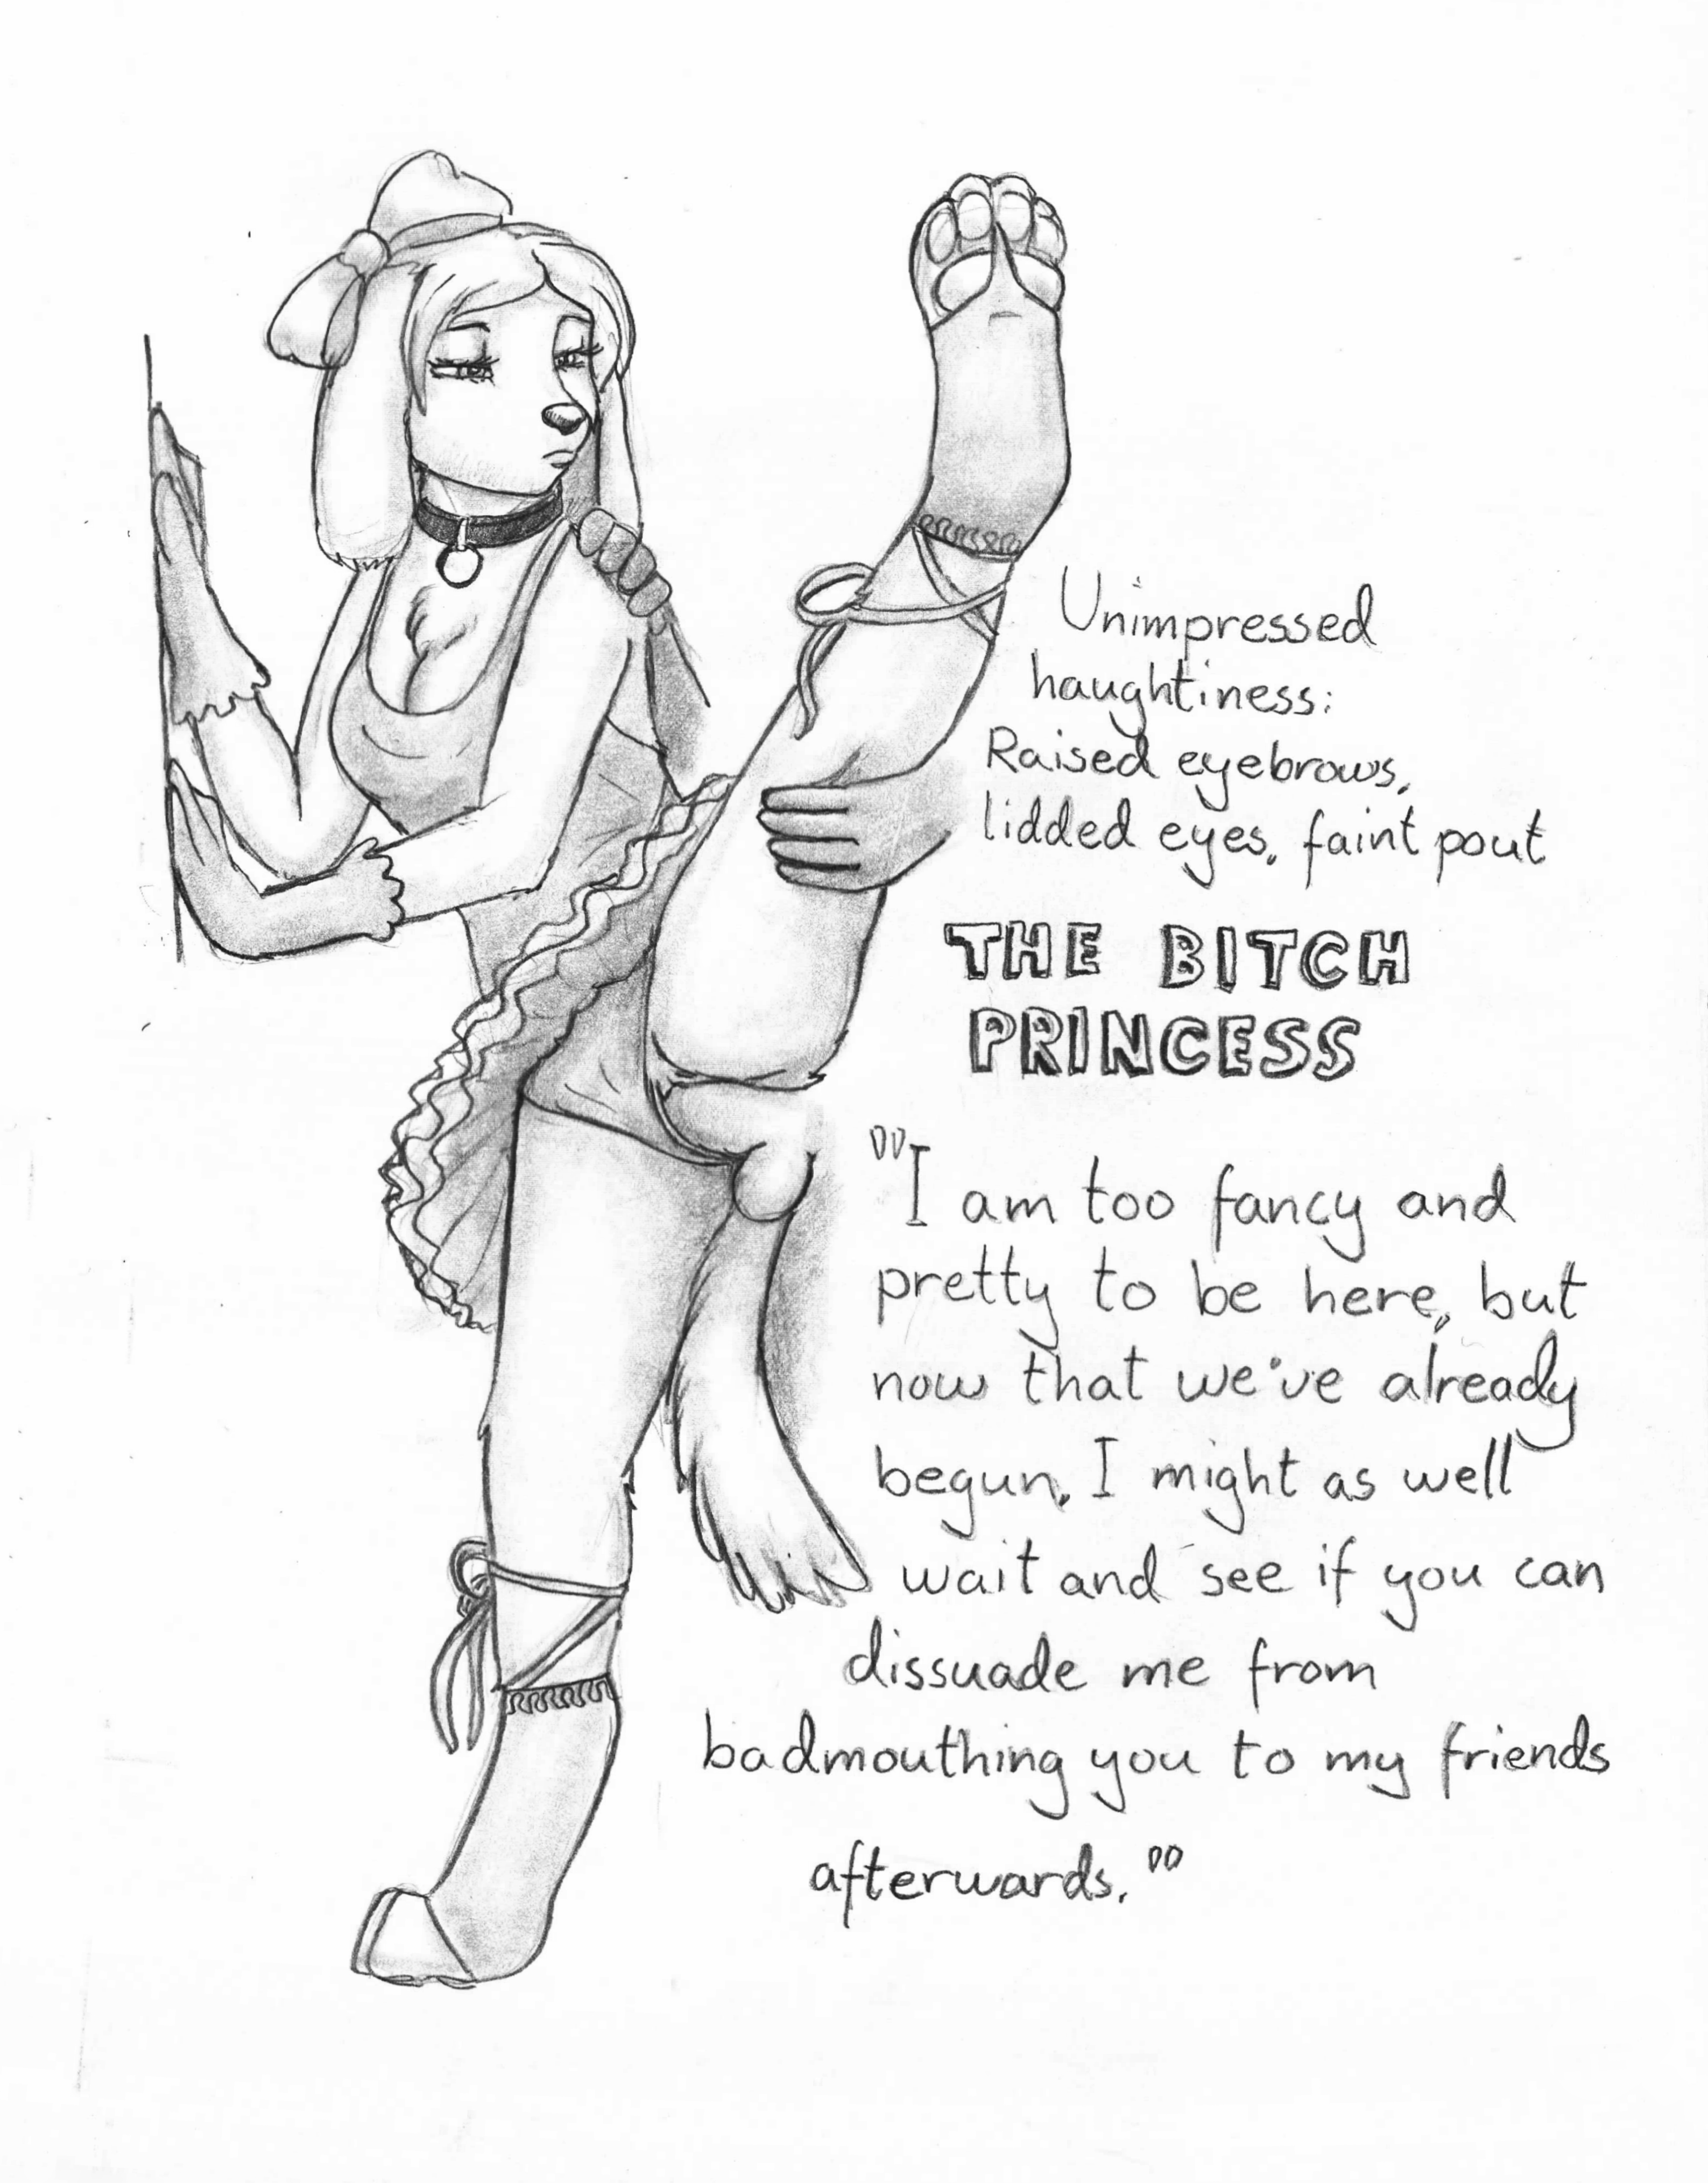 Unimpressed
haughtiness:
Raised eyebrows,
lidded eyes, faint pout
THE BITCH
PRINCESS
"I am too fancy and
pretty to be here, but
now that we've already
begun, I might as well
wait and see if you can
dissuade me from
badmouthing you to my friends
afterwards."